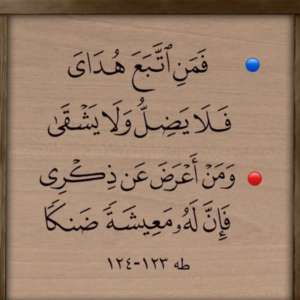 فَمَنِ ٱتَّبَعَ هُدَاىَ
فَلَا يَضِلُّ وَلَا يَشْقَىٰ
وَمَنْ أَعْرَضَ عَن ذِكْرِى
فَإِنَّ لَهُۥ مَعِيشَةً ضَنكًا
طه ١٢٣-١٢٤